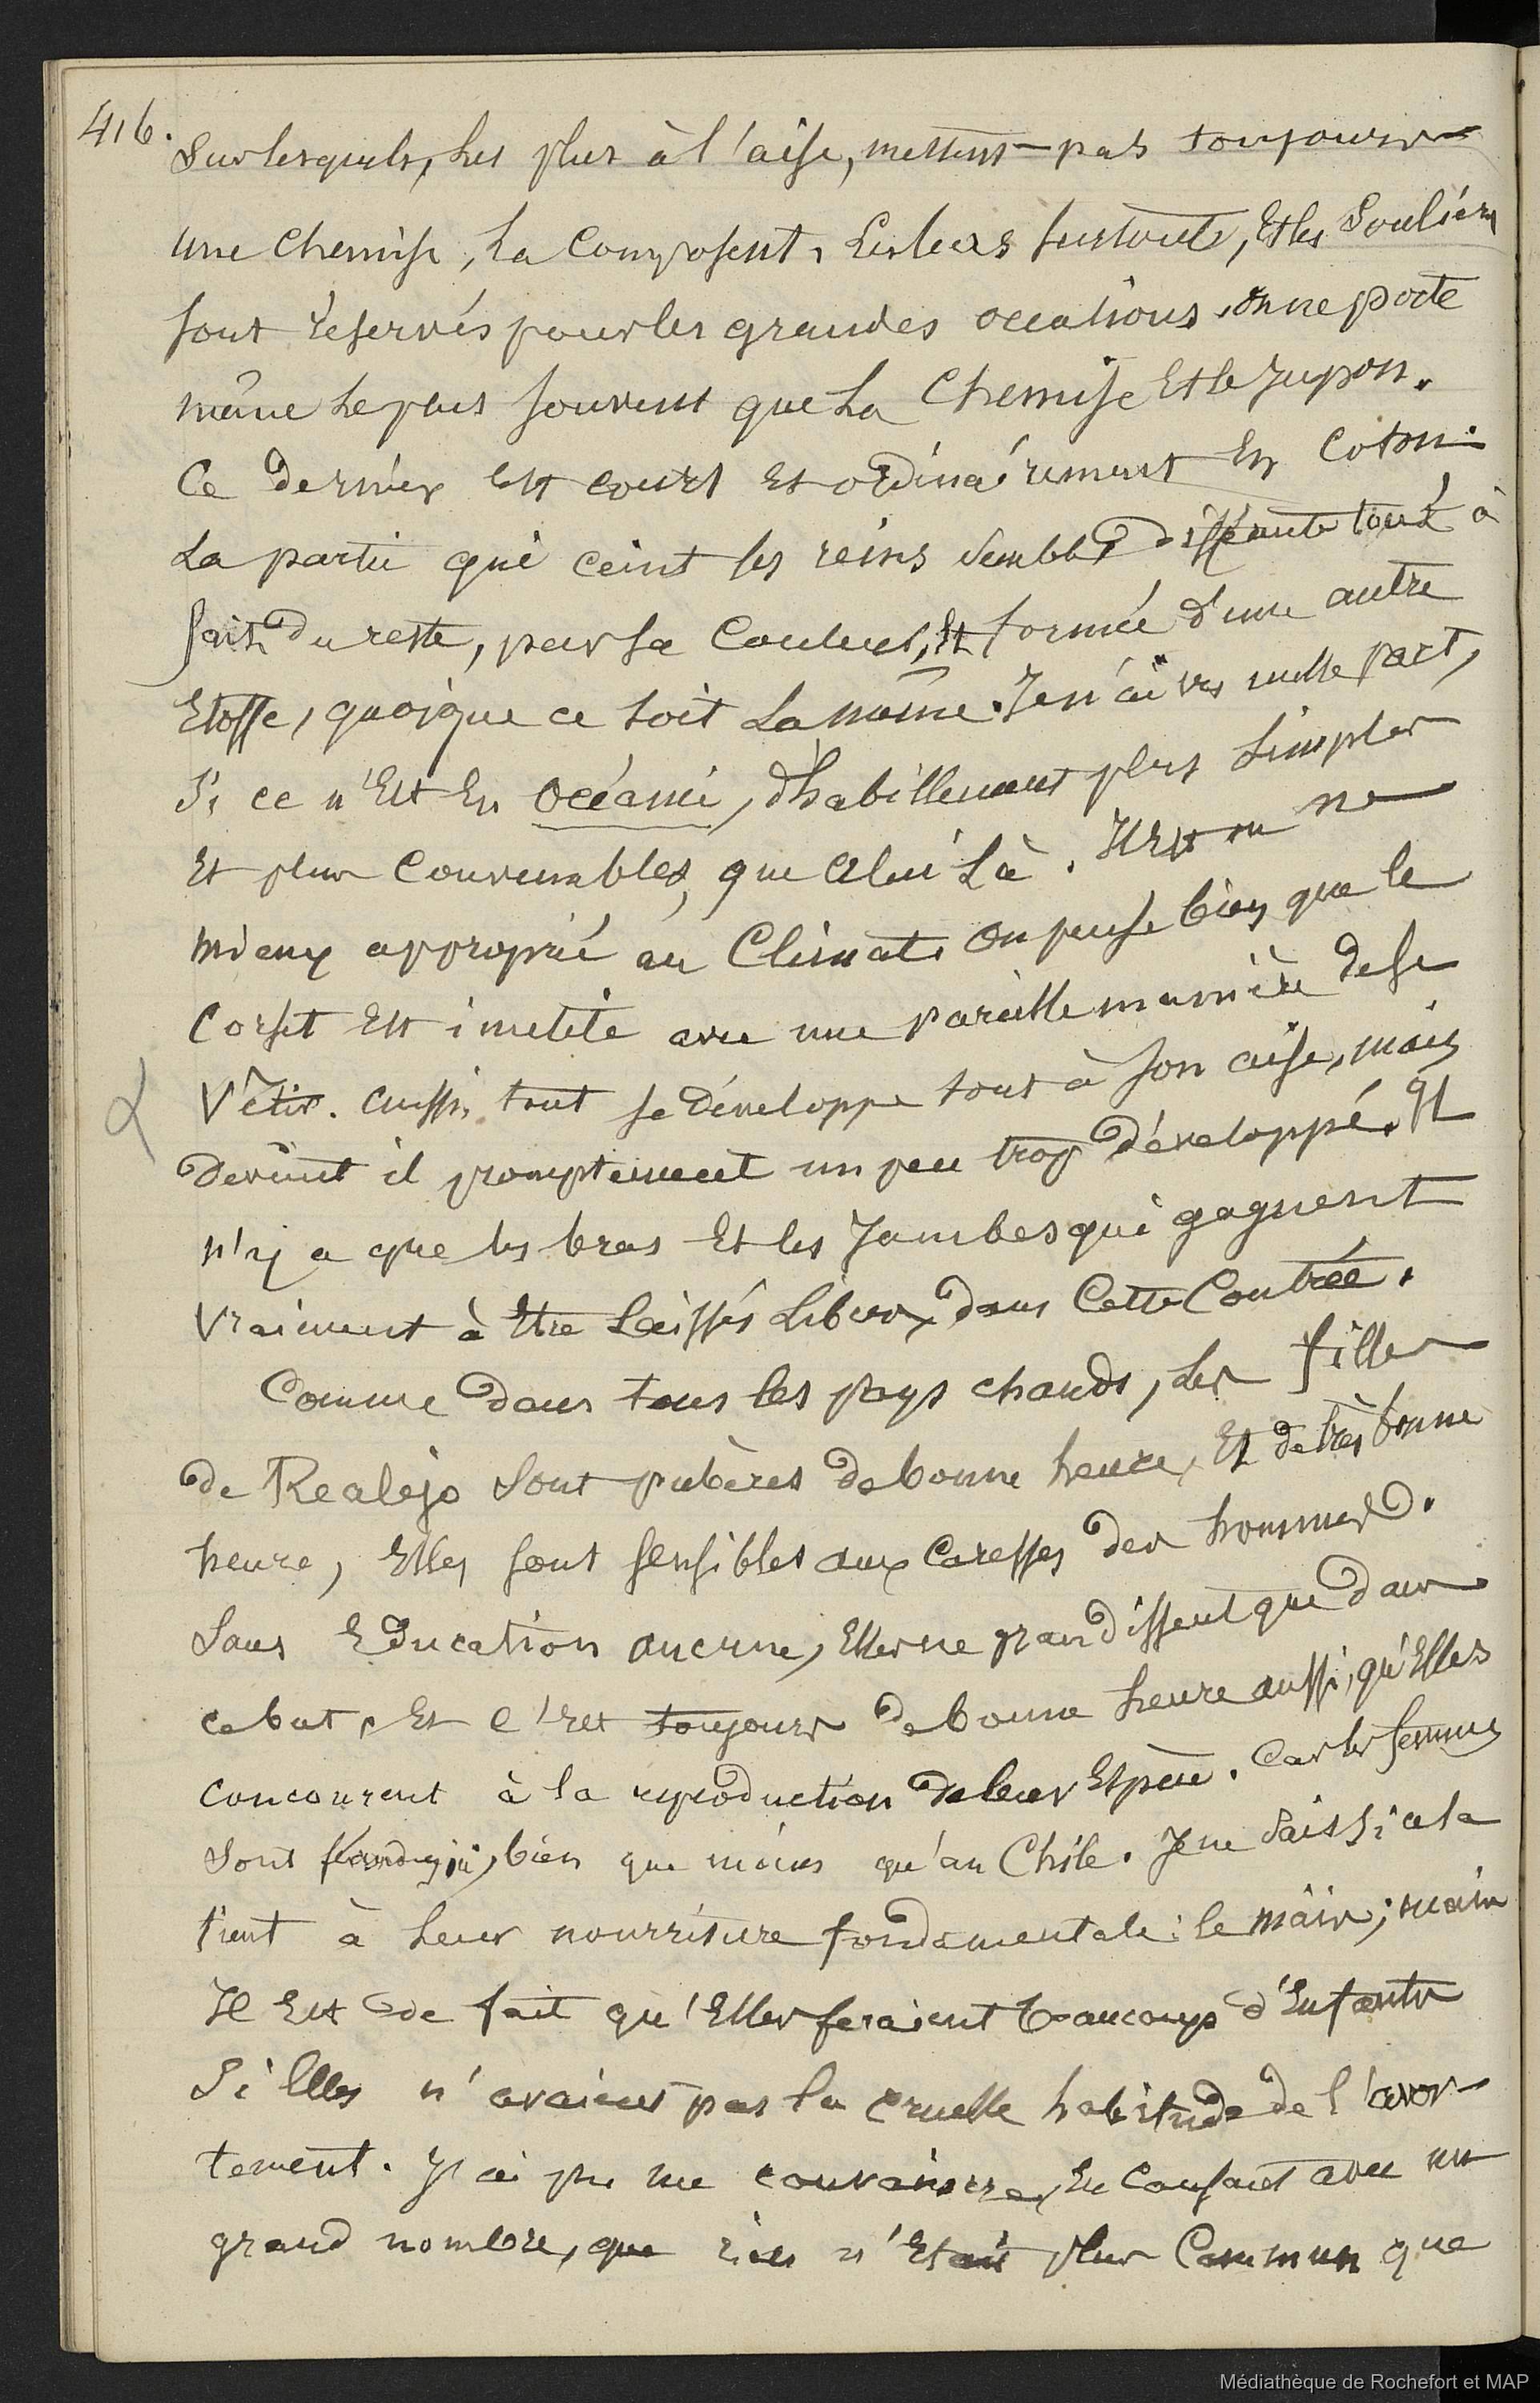 416.
Surlesquels, les plus à l'aise, mettent pas toujours
une chemise, la composent. Les bas surtout, et les souliers
sont réservés pour les grandes occations, on ne porte
même le plus souvent que la chemise et le jupon.
Ce dernier est court et ordinairement en coton.
La partie qui ceint les reins semble différente tout à
fait du reste, par sa couleur, et formée d'une autre
Etoffe, quoique ce soit la même. Je n'ai vu nulle part,
Si ce n'est en océanie, d'habillement plus simples
Et plus convenables, que celui là. Il est on ne
mieux approprié au Climat. On pense bien que le
Corset est inutile avec une pareille manière de se
Vêtir. aussi, tout se développe tout à son aise, mais
devient il promptement un peu trop développé. Il
n'y a que les bras et les Jambes qui gagnent
vraiment à Etre laissés libres, dans Cette Contrée.
Comme dans tous les pays chauds, les filles
de Realejo sont pubères de bonne heure, Et de très bonne
heure, Elles sont sensibles aux caresses des hommes.
Sans Education aucune, Elles ne grandissent que dans
ce but, Et c'est toujours de bonne heure aussi, qu'Elles
concourent à la reproduction de leur Espèce. Car les femmes
sont bien que moins qu'au Chile. Je ne sais si cela
tient à leur nourriture fondamentale : le maïs ; mais
Il Est de fait qu'Elles feraient beaucoup d'Enfants
Si Elles n'avaient pas la cruelle habitude de l'avor-
tement. J'ai pu me convaincre, En causant avec un
grand nombre, que rien n'Etait plus Commun que
Médiathèque de Rochefort et MAP